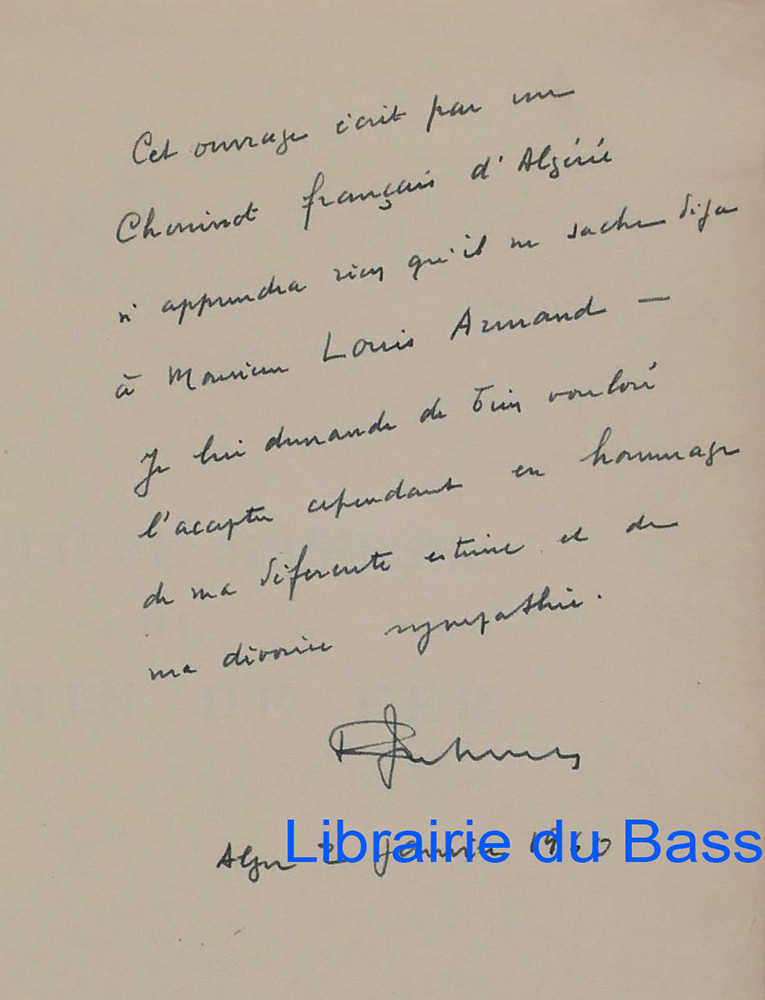 Cet ouvrage écrit par un
Cheminot français d'Algérie
n'apprendra rien qu'il ne sache déja
à Monsieur Louis Armand —
Je lui demande de bien vouloir
l'accepter cependant en hommage
de ma déferente estime et de
ma dévouée sympathie.
Librairie du Bass
Alger 2 Janvier 1960